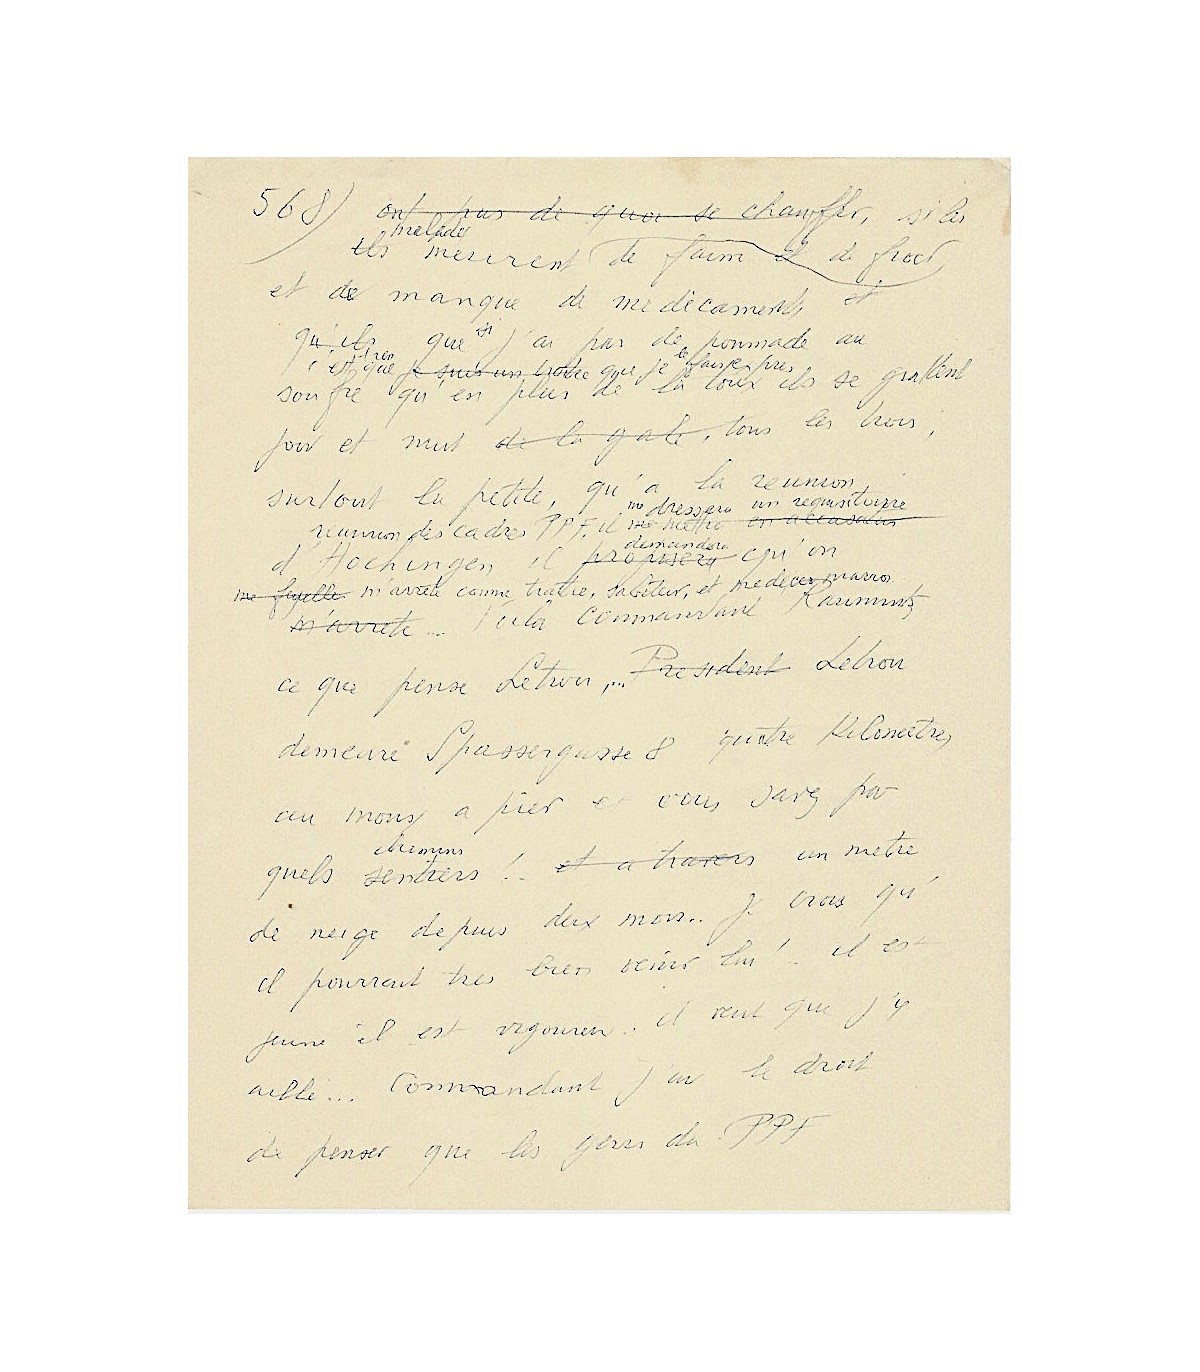 568) ont pas de quoi se chauffer, si les
malades
ils meurent de faim et de froid
et de manque de medicaments et
qu'ils que si j'ai pas de pommade au
c'est que je suis un traitre que je le fais exprès
soufre qu'en plus de la toux ils se grattent
jour et nuit de la gale, tous les trois,
surtout la petite, qu'a la reunion
me dressera un requisitoire
reunion des cadres PPF. il me mettra en accusation
demandera
d'Hochingen il proposera qu'on
me fusille m'arrete comme traitre, saboteur, et medecin marron
m'arrete... Voilà Commandant Raumnitz
ce que pense Letrou,... President Letrou
demeure Spassergasse 8 quatre Kilometres
au moins a pied et vous savez par
chemins
quels sentiers !.. et a travers un metre
de neige depuis deux mois.. Je crois qu'
il pourrait tres bien venir lui !.. il est
jeune il est vigoureux.. il veut que j'y
aille... Commandant j'ai le droit
de penser que les gens du PPF